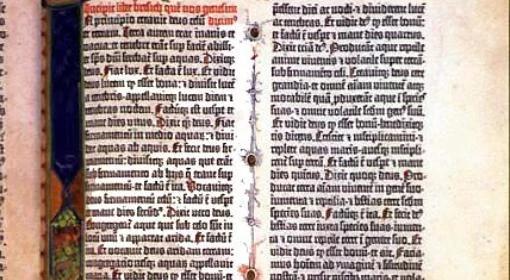 Incipit liber bresith quē nos genesim
In principio creavit deus celū dicim9
et terram. Terra autem erat inanis et
vacua: et tenebre erāt sup faciē abissi:
et sp̄s dn̄i ferebat᷑ sup aquas. Dixitq;
deus. Fiat lux. Et facta ē lux. Et vidit
deus lucem q̄ esset bona: et divisit lucē
a tenebris·appellavitq; lucem diem et
tenebras noctem. Factumq; est vespe et
mane dies unus. Dixit q̄z deus. Fiat
firmamentū in medio aquar᷑: et divi-
dat aquas ab aquis. Et fecit deus fir-
mamentū: divisitq; aquas que erāt
sub firmamento ab hijs q̄ erant sup
firmamentū: et factū ē ita. Vocavitq;
deus firmamentū celū: et factū est vespe
et mane dies secūd9. Dixit vero deus.
Congregent᷑ aque que sub celo sūt in
locū unū et appareat arida. Et factū ē
ita. Et vocavit deus aridam terram:
congregationesq; aquar᷑ appellavit
maria. Et vidit deus q̄ esset bonū et
pesset diei ac nocti: et divideret lucē
ac tenebras. Et vidit de9 q̄ esset bonū:
et factū ē vespe et mane dies quartus.
Dixit etiā de9. Producāt aque reptile
anime viventis et volatile super terrā:
sub firmamēto celi. Creavitq; deus cete
grandia·et omnē aīam viventem atq;
motabilē quā pduxerāt aque ī species
suas: et omne volatile scd̄m gen9 suū.
Et vidit deus q̄ esset bonū: benedixitq;
eis dicens. Crescite et multiplicamini·et
replete aquas maris: avesq; multipli-
cent᷑ sup terrā. Et factū ē vespe et mane
dies quintus. Dixit quoq; deus. Pro-
ducat terra aīam viventem in gene᷑ suo:
iumenta et reptilia·et bestias terre scd̄m
species suas. Factūq; ē ita. Et fecit de9
bestias terre iuxta species suas: iumen-
ta et omne reptile terre ī genere suo. Et
vidit deus q̄ esset bonū: et ait. Facia-
mus hoīem ad ymaginē et similitudinē